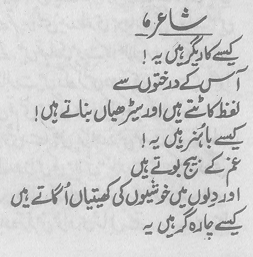 شاعر
کیسے کاریگر ہیں یہ!
آس کے درختوں سے
لفظ کاٹتے ہیں اور سیڑھیاں بناتے ہیں!
کیسے باہنر ہیں یہ!
غم کے بیج بوتے ہیں
اور دلوں میں خوشیوں کی کھیتیاں اُگاتے ہیں
کیسے چارہ گر ہیں یہ